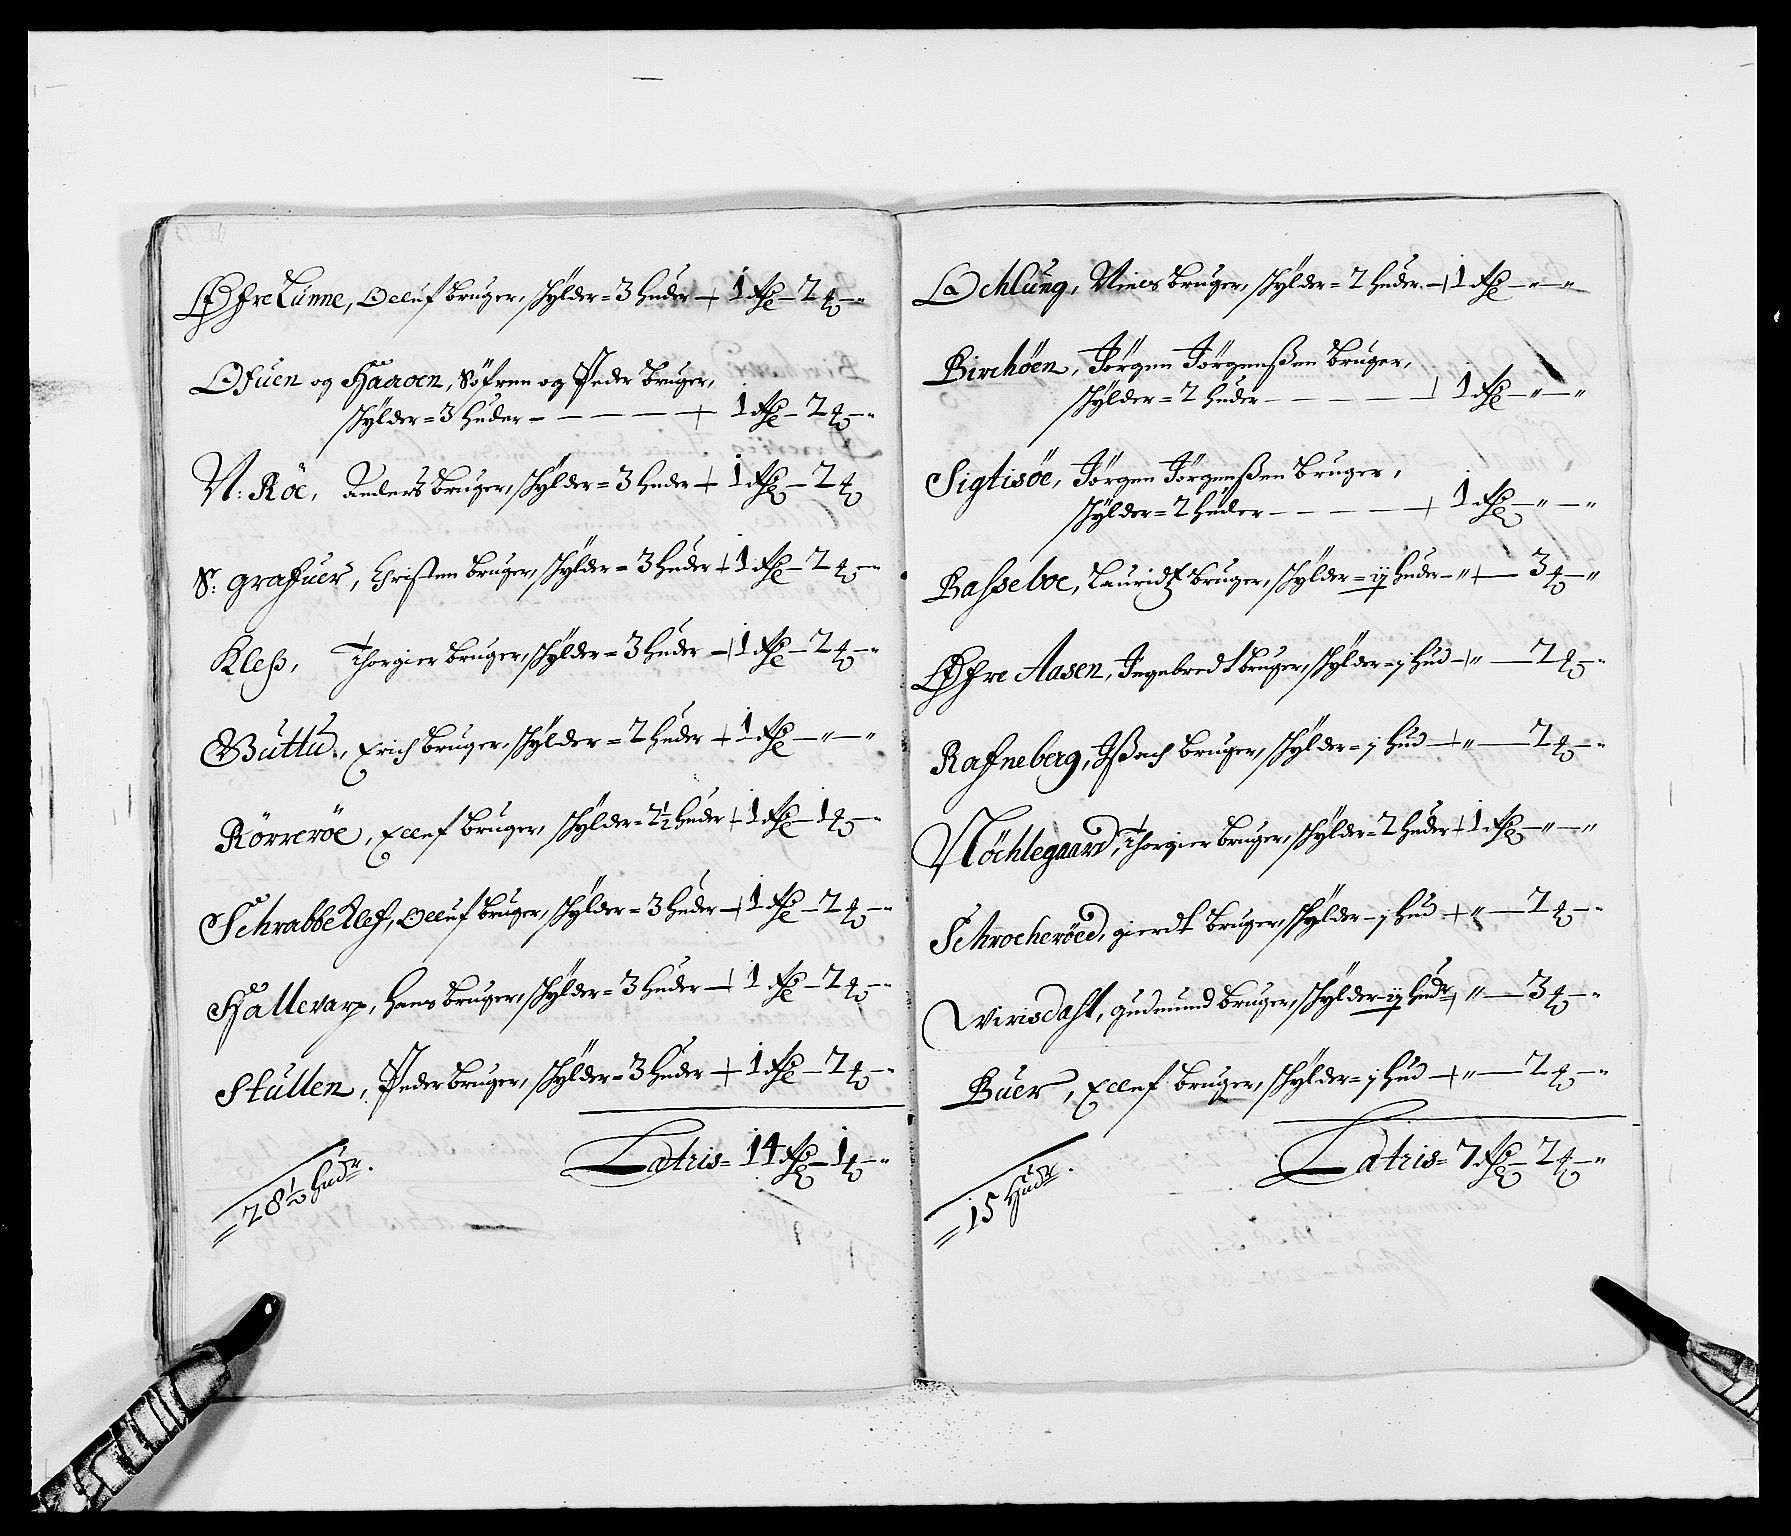 Øfre Lunne, Olluf bruger, skylder = 3 huder + 1 Rdr – 2 ort – "
Ofuen og Haaroen, Söfren og Peder bruger,
skylder = 3 huder – – – – + 1 Rdr – 2 ort – "
N: Röe, Anders bruger, skylder = 3 huder + 1 Rdr – 2 ort
S: grafuer, Christen bruger, skylder = 3 huder + 1 Rdr – 2 ort – "
Kleß, Thorgier bruger, skylder = 3 huder + 1 Rdr – 2 ort – "
Buttu, Erich bruger, skylder = 2 huder + 1 Rdr – " – "
Rörreröe, Ellef bruger, skylder = 2½ huder + 1 Rdr – 1 ort – "
Schrabbeklef, Olluf bruger, skylder = 3 huder + 1 Rdr – 2 ort – "
Hallevarp, Hans bruger, skylder = 3 huder + 1 Rdr – 2 ort – "
Stullen, Peder bruger, skylder = 3 huder + 1 Rdr – 2 ort – "
Latris = 14 Rdr – 1 ort – "
= 28½ hudr.
Ochlung, Niels bruger, skylder = 2 huder + 1 Rdr – " – "
Birchöen, Jörgen Jörgenßen bruger,
skylder = 2 huder – – – – + 1 Rdr – " – "
Sigtisöe, Jörgen Jörgenßen bruger,
skylder = 2 huder – – – – + 1 Rdr – " – "
Basseboe, Lauridtz bruger, skylder = ij huder – " + – 3 ort – "
Øfre Aasen, Ingebredt bruger, skylder = j hud + " – 2 ort – "
Rafneberg, Ißach bruger, skylder = j hud + " – 2 ort – "
Nöchlegaard, Thorgier bruger, skylder = 2 huder + 1 Rdr – " – "
Schrocheröed, gierdt bruger, skylder – j hud + " – 2 ort – "
Wirisdahl, gudmund bruger, skylder – ij hudr + " – 3 ort – "
Buer, Ellef bruger, skylder = j hud + " – 2 ort – "
Latris = 7 Rdr – 2 ort – "
= 15 hudr.